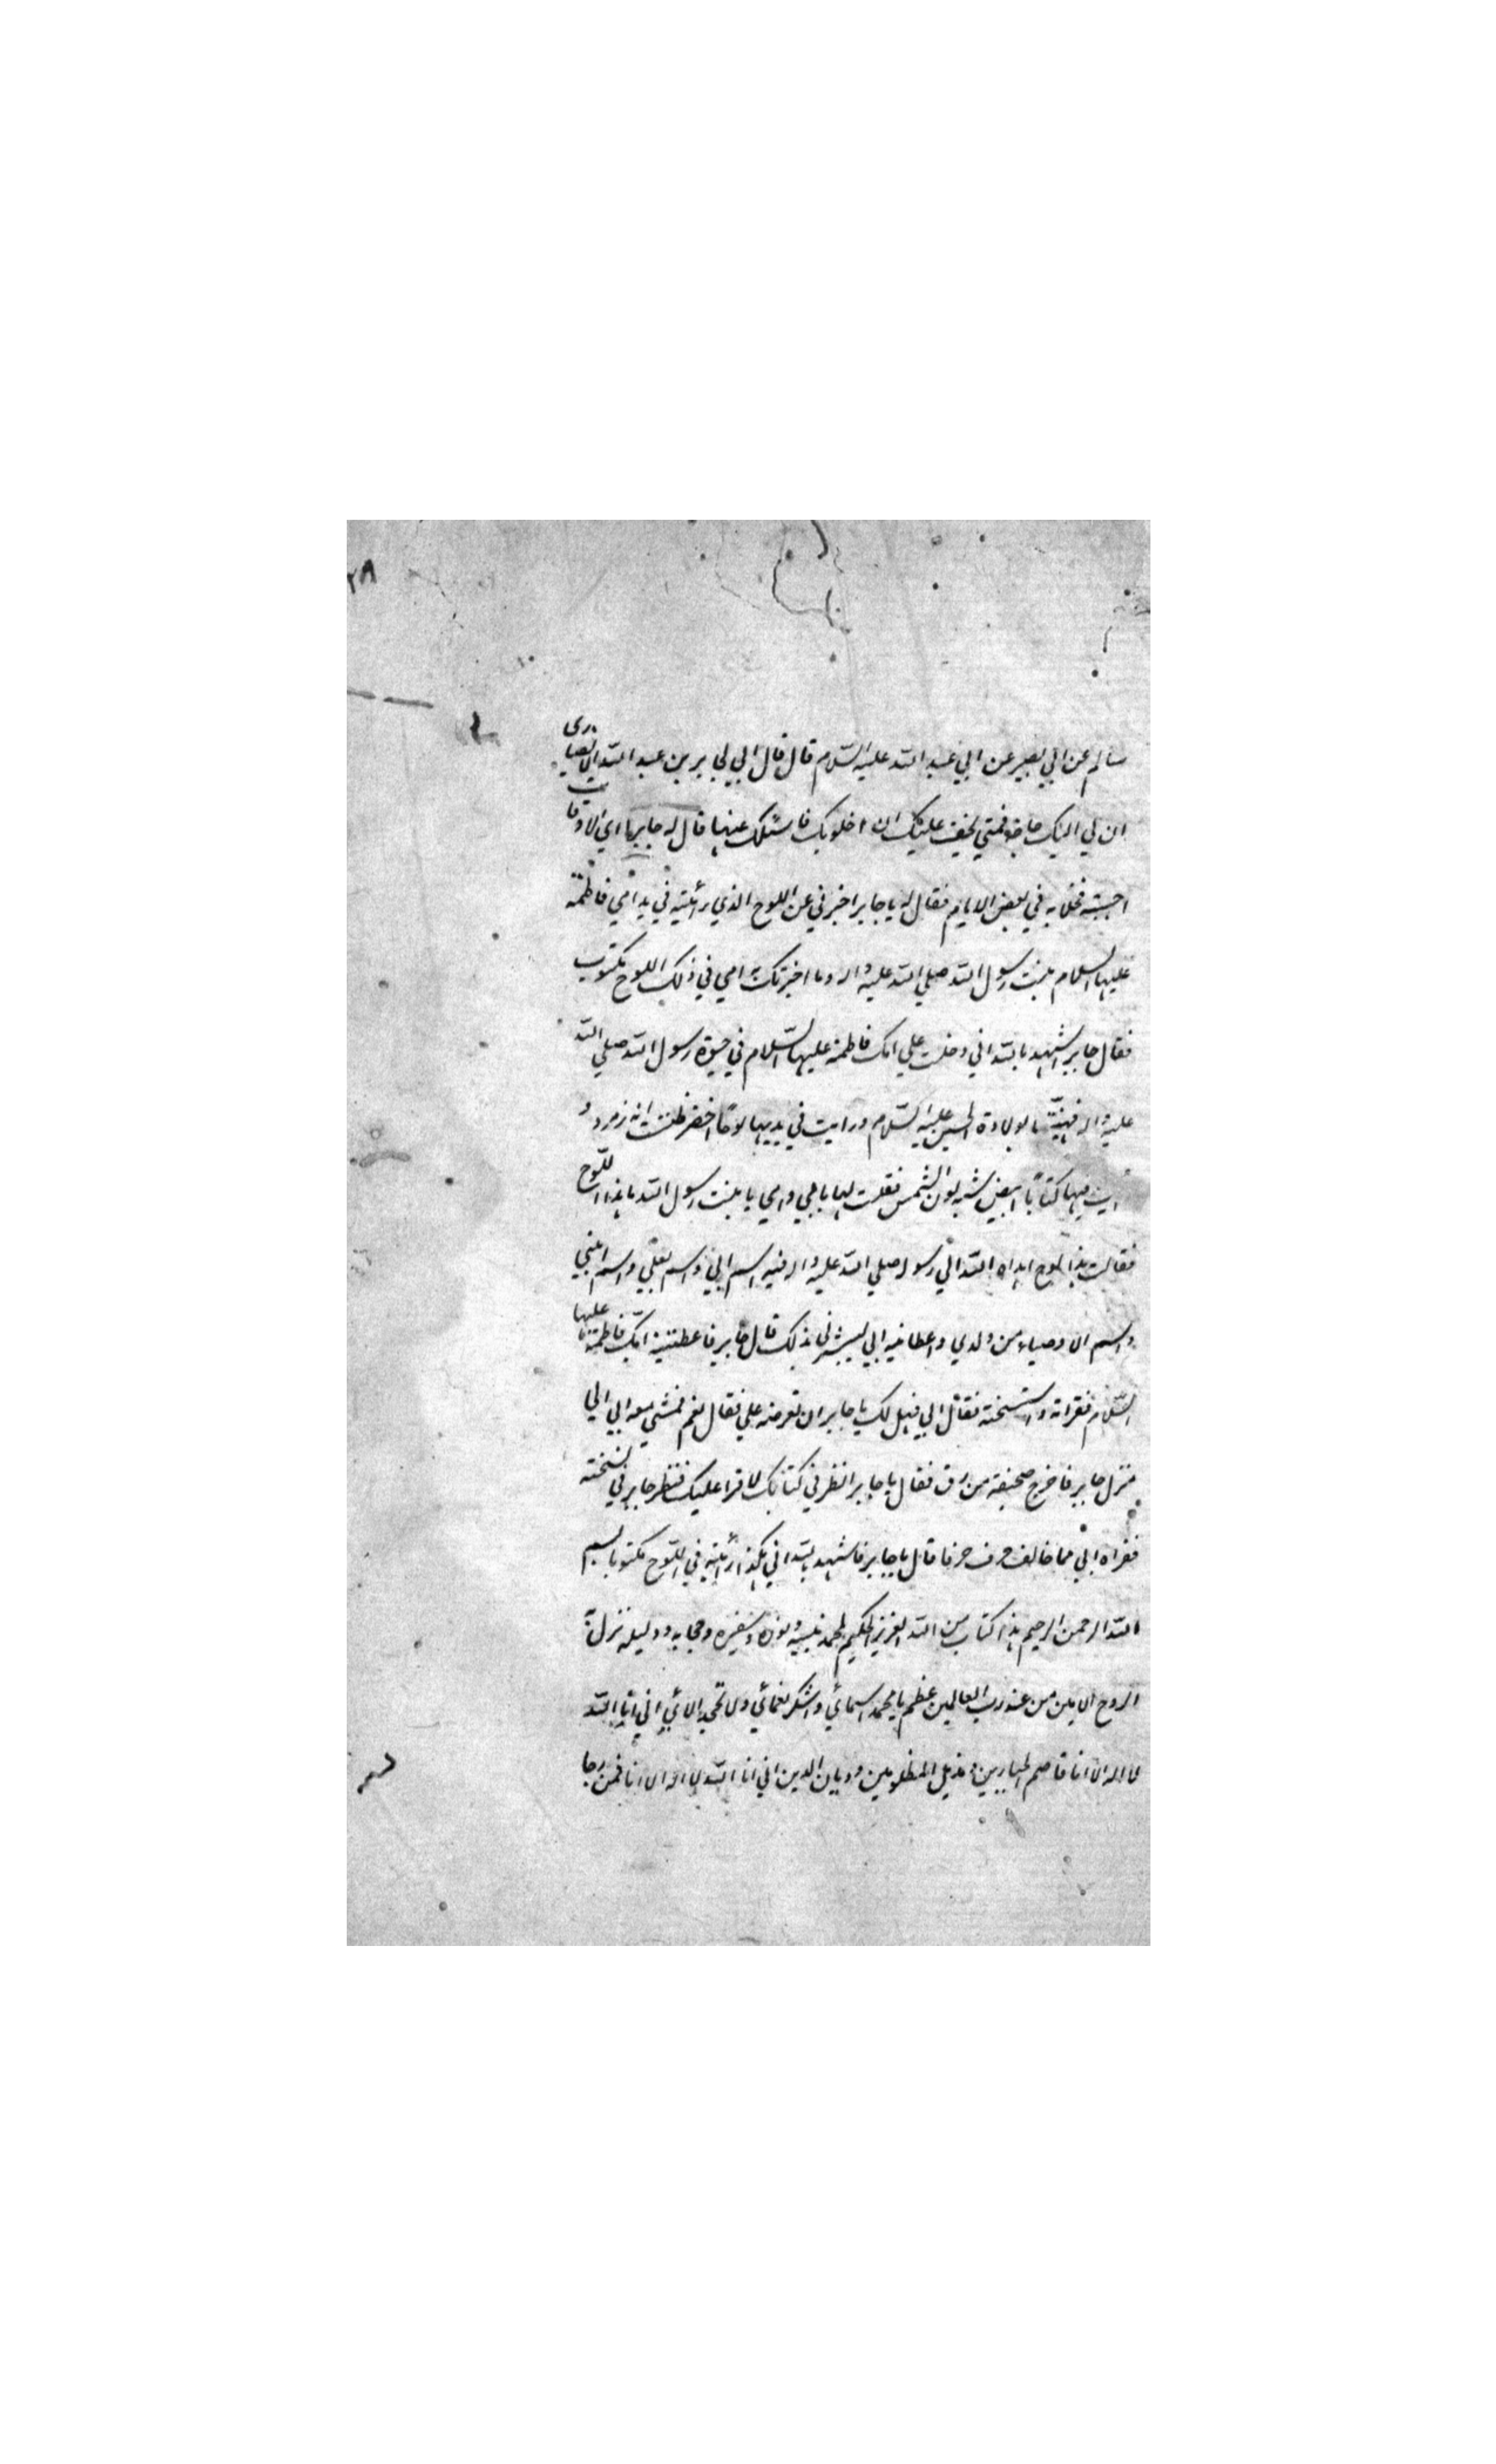 ٢٨
سالم عن ابي بصير عن ابي عبد الله عليه السّلام قال قال ابي لجابر بن عبد الله الانصارى
ان لي اليك حاجة فمتي يخف عليك ان اخلو بك فاسئلك عنها قال له جابر اي الاوقات
احببته فخلا به في بعض الايام فقال له يا جابر اخبرني عن اللوح الذي رأيته في يد امي فاطمة
عليها السلام بنت رسول الله صلي الله عليه واله وما اخبرتك به امي في ذلك اللوح مكتوب
فقال جابر اشهد بالله اني دخلت علي امك فاطمة عليها السّلام في حيوة رسول الله صلي الله
عليه واله فهنيّتها بولادة الحسين عليه السّلام ورايت في يديها لوحًا اخضر ظننت انه زمرد و
رايت فيها كتابًا ابيض شبه لون الشمس فقلت لها بابي وامي يا بنت رسول الله ما هذا اللّوح
فقالت هذا لوح اهداه الله الي رسوله صلي الله عليه واله فيه اسم ابي واسم بعلي واسم ابني
واسم الاوصياء من ولدي واعطانيه ابي ليبشرني بذلك قال جابر فاعطتنيه امّك فاطمة عليها
السّلام فقراته واستنسخته فقال ابي فهل لك يا جابر ان تعرضه علي فقال نعم فمشي معه ابي الي
منزل جابر فاخرج صحيفة من رق فقال يا جابر انظر في كتابك لاقرا عليك فنظر جابر في نسخته
فقراه ابي فما خالف حرف حرفا قال يا جابر فاشهد بالله اني هكذا رأيته في اللّوح مكتوبا بسم
الله الرحمن الرحيم هذا كتاب من الله العزيز الحكيم لمحمد نبيه ونوره وسفيره وحجابه ودليله نزل به
الروح الامين من عند رب العالمين عظم يا محمد اسمائي واشكر نعمائي ولا تجحد الائي اني انا الله
لا اله الا انا قاصم الجبارين ومذيل المظلومين وديان الدين اني انا الله لا اله الا انا فمن رجا